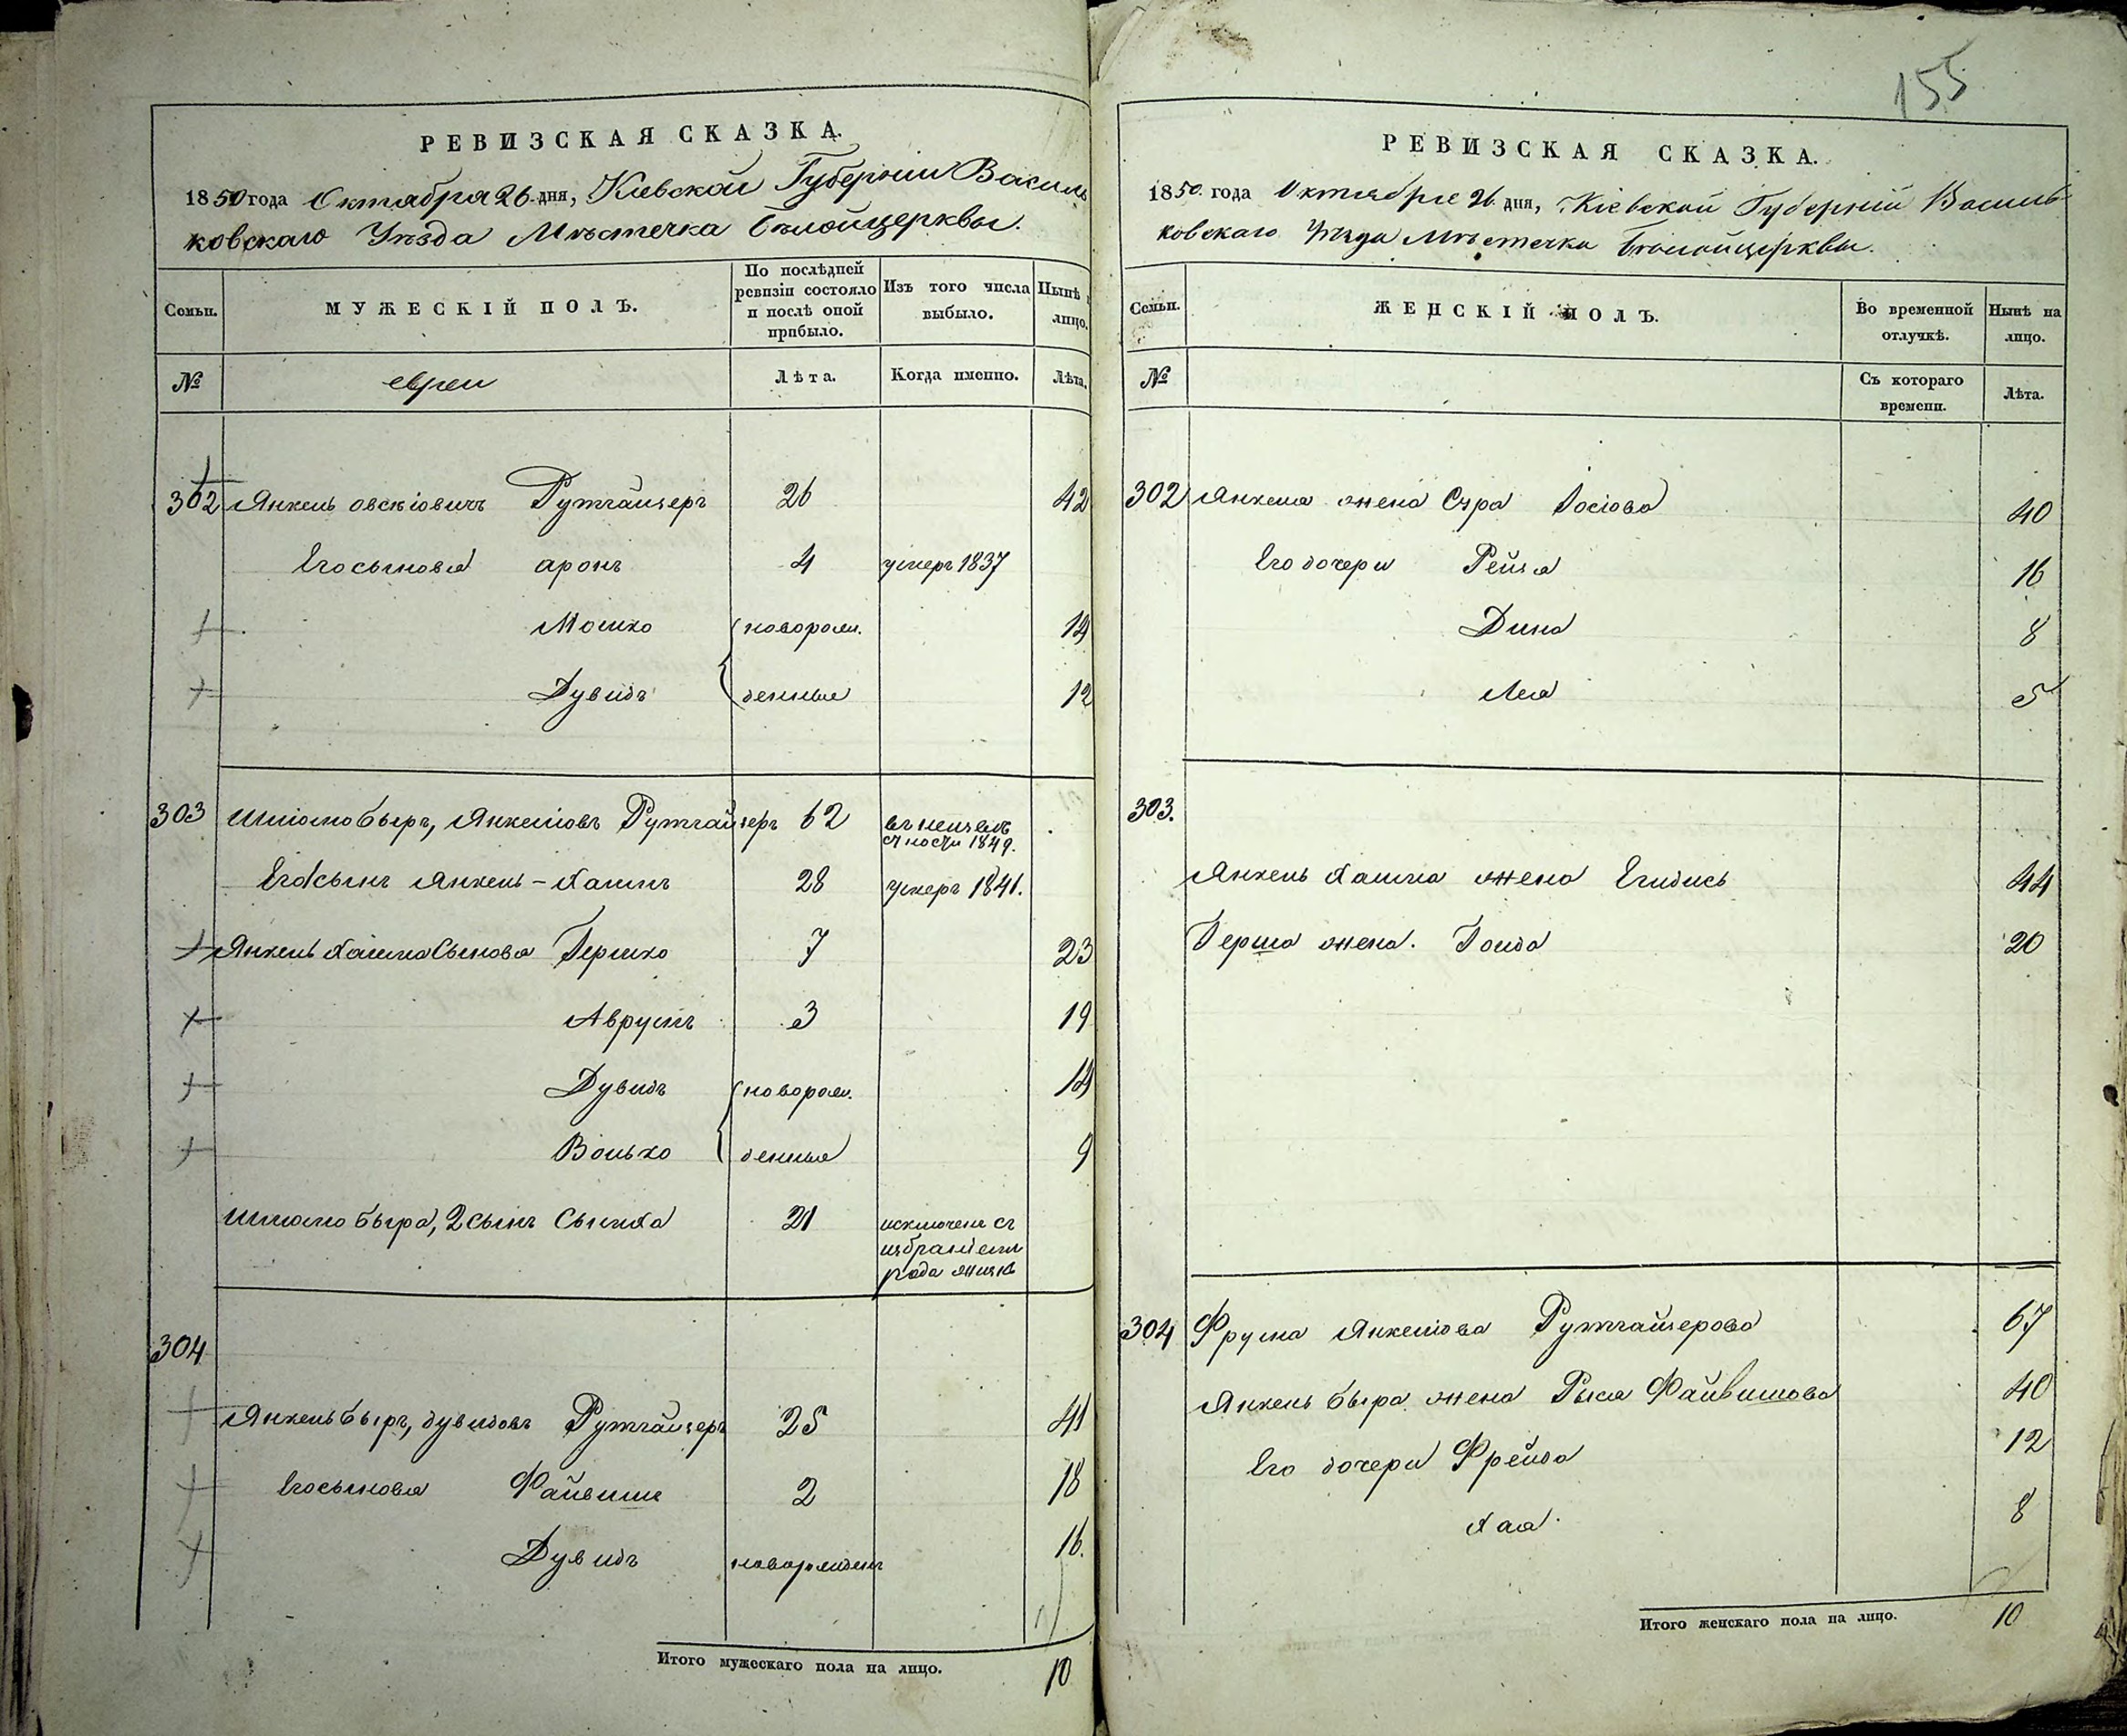 РЕВИЗСКАЯ СКАЗКА.
1850 года Октября 26 дня, Кіевской Губерніи Василь
ковскаго Уѣзда Мѣстечка Бѣлойцерквы.
Семьи.
МУЖЕСКІЙ ПОЛЪ.
По послѣдней
ревизіи состояло
и послѣ оной
прибыло.
Изъ того числа
выбыло.
Нынѣ
лицо.
№
евреи
Лѣта.
Когда именно.
Лѣта.
302 Янкель Овсіовичъ Рутгайзеръ 26 42
Его сыновья Аронъ 4 умеръ 1837
Мошко новорож. 14
Дувидъ денные 12
303 Шліомо Беръ, Янкеліовъ Рутгайзеръ 62 въ неизвѣ
стности 1849.
Его сынъ Янкель-Хаимъ 28 умеръ 1841.
Янкель Хаима Сыновья Гершко 7 23
Аврумъ 3 19
Дувидъ новорож. 14
Волько денные 9
Шліомо Бера, 2 сынъ Симха 21 исключенъ съ
избраніемъ
рода жизни
304
Янкель Беръ, Дувидовъ Рутгайзеръ 25 41
Его сыновья Файвишъ 2 18
Дувидъ новорожденъ 16.
Итого мужескаго пола на лицо. 10
155
РЕВИЗСКАЯ СКАЗКА.
1850. года Октября 26. дня, Кіевской Губерніи Василь
ковскаго Уѣзда Мѣстечка Бѣлойцерквы.
Семьи.
ЖЕНСКІЙ ПОЛЪ.
Во временной
отлучкѣ.
Нынѣ на
лицо.
№
Съ котораго
времени.
Лѣта.
302 Янкеля жена Сура Іосіова 40
Его дочери Рейзя 16
Дина 8
Лея 5
303.
Янкель Хаима жена Егидись 44
Герша жена. Голда 20
304 Фрума Янкеліова Рутгайзерова 67
Янкель Бера жена Рыся Файвишова 40
Его дочери Фрейда 12
Хая. 8
Итого женскаго пола на лицо. 10